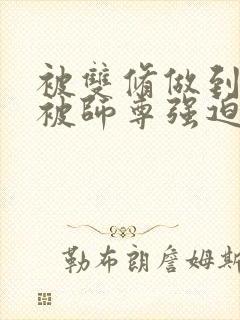 被雙脩做到
被師尊强迫
勒布朗詹姆斯